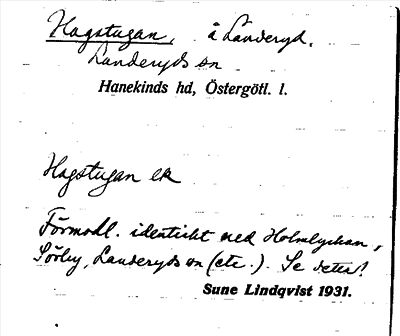 Hagstugan, å Landeryd,
Landeryds sn
Hanekinds hd, Östergötl. l.
Hagstugan ek
Förmodl. identiskt med Holmlyckan,
Sörby, Landeryds sn (etc.). Se detta!
Sune Lindqvist 1931.